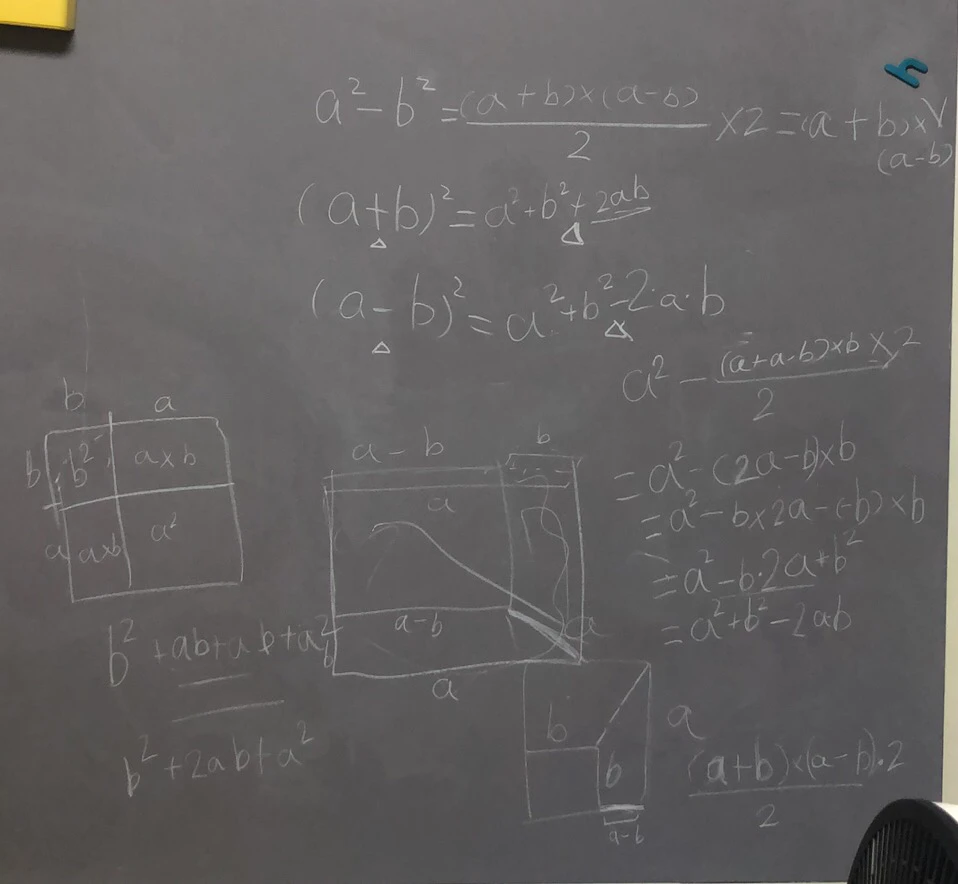 a² - b² = (a+b)×(a-b)/2 ×2 = (a+b)×(a-b)
(a+b)² = a² + b² + 2ab
(a-b)² = a² + b² - 2·a·b
a² - (a+a-b)×b×2/2
= a² - (2a-b)×b
= a² - b×2a - (-b)×b
= a² - b·2a + b²
= a² + b² - 2ab
b a
b b² a×b
a a×b a²
b² + ab + ab + a²
b² + 2ab + a²
a-b b
a
a-b a
b
a
b a
b
a-b
(a+b)×(a-b)·2/2